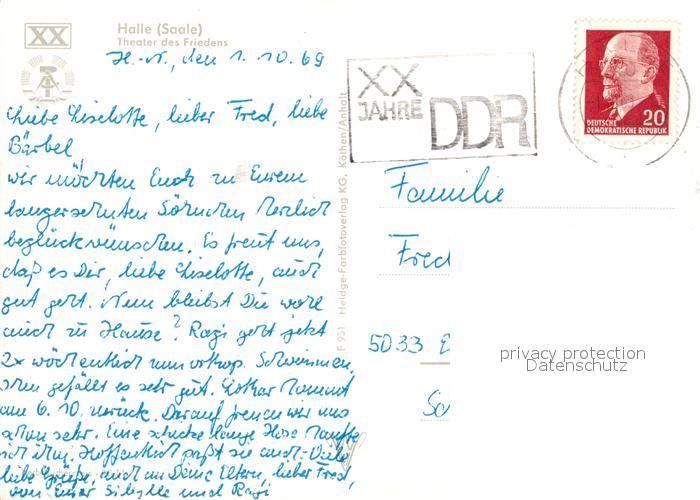 XX
Halle (Saale)
Theater des Friedens
H.-N., den 1. 10. 69
Liebe Liselotte, lieber Fred, liebe
Bärbel!
wir möchten Euch zu Eurem
langersehnten Söhnchen herzlich
beglückwünschen. Es freut uns,
daß es Dir, liebe Liselotte, auch
gut geht. Nun bleibst Du wohl
auch zu Hause? Ragi geht jetzt
2x wöchentlich zum orthop. Schwimmen,
ihm gefällt es sehr gut. Lothar kommt
am 6. 10. zurück. Darauf freuen wir uns
schon sehr. Eine schicke lange Hose kaufte
ich ihm. Hoffentlich paßt sie auch. Viele
liebe Grüße, auch an Deine Eltern, lieber Fred,
von Euer Sibylle und Ragi
F 931 Heldge-Farbfotoverlag KG, Köthen/Anhalt
XX
JAHRE DDR
20
DEUTSCHE
DEMOKRATISCHE REPUBLIK
Familie
Fred
5033 E
privacy protection
Datenschutz